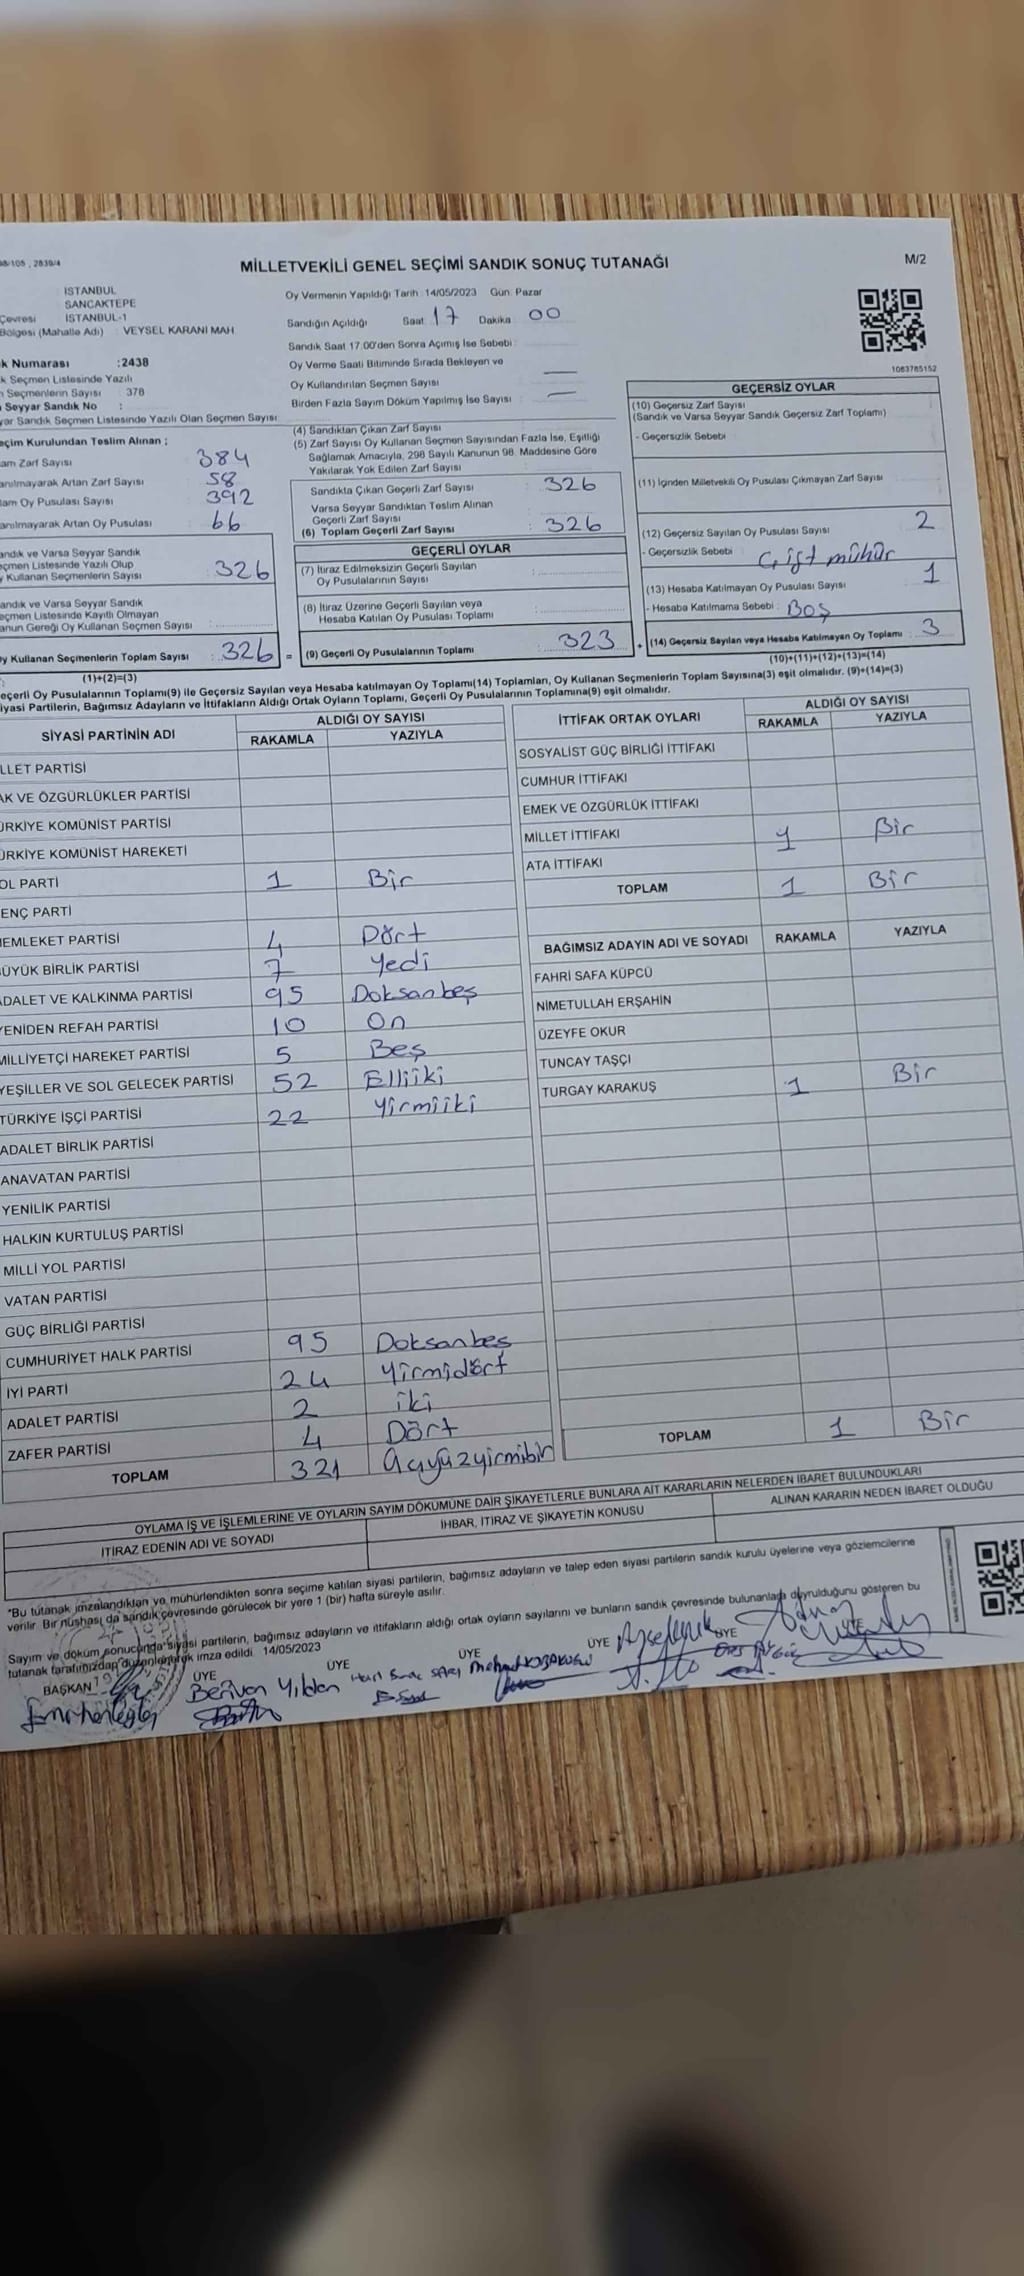 98/105 , 2839/4
MİLLETVEKİLİ GENEL SEÇİMİ SANDIK SONUÇ TUTANAĞI
M/2
İSTANBUL
SANCAKTEPE
Çevresi İSTANBUL-1
Bölgesi (Mahalle Adı) : VEYSEL KARANİ MAH
Oy Vermenin Yapıldığı Tarih :14/05/2023 Gün: Pazar
Sandığın Açıldığı Saat 17 Dakika 00
Sandık Saat 17:00'den Sonra Açılmış İse Sebebi :
Oy Verme Saati Bitiminde Sırada Bekleyen ve
Oy Kullandırılan Seçmen Sayısı —
Birden Fazla Sayım Döküm Yapılmış İse Sayısı : —
1083785152
k Numarası :2438
k Seçmen Listesinde Yazılı
n Seçmenlerin Sayısı : 378
Seyyar Sandık No :
yar Sandık Seçmen Listesinde Yazılı Olan Seçmen Sayısı:
eçim Kurulundan Teslim Alınan ;
am Zarf Sayısı 384
anılmayarak Artan Zarf Sayısı 58
lam Oy Pusulası Sayısı 392
anılmayarak Artan Oy Pusulası : 66
andık ve Varsa Seyyar Sandık
eçmen Listesinde Yazılı Olup
y Kullanan Seçmenlerin Sayısı : 326
andık ve Varsa Seyyar Sandık
eçmen Listesinde Kayıtlı Olmayan
anun Gereği Oy Kullanan Seçmen Sayısı :
y Kullanan Seçmenlerin Toplam Sayısı : 326 =
(1)+(2)=(3)
(4) Sandıktan Çıkan Zarf Sayısı
(5) Zarf Sayısı Oy Kullanan Seçmen Sayısından Fazla İse, Eşitliği
Sağlamak Amacıyla, 298 Sayılı Kanunun 98. Maddesine Göre
Yakılarak Yok Edilen Zarf Sayısı :
Sandıkta Çıkan Geçerli Zarf Sayısı : 326
Varsa Seyyar Sandıktan Teslim Alınan
Geçerli Zarf Sayısı
(6) Toplam Geçerli Zarf Sayısı : 326
GEÇERLİ OYLAR
(7) İtiraz Edilmeksizin Geçerli Sayılan
Oy Pusulalarının Sayısı :
(8) İtiraz Üzerine Geçerli Sayılan veya
Hesaba Katılan Oy Pusulası Toplamı :
(9) Geçerli Oy Pusulalarının Toplamı : 323 +
GEÇERSİZ OYLAR
(10) Geçersiz Zarf Sayısı
(Sandık ve Varsa Seyyar Sandık Geçersiz Zarf Toplamı)
- Geçersizlik Sebebi
(11) İçinden Milletvekili Oy Pusulası Çıkmayan Zarf Sayısı
(12) Geçersiz Sayılan Oy Pusulası Sayısı : 2
- Geçersizlik Sebebi : Çift mühür
(13) Hesaba Katılmayan Oy Pusulası Sayısı : 1
- Hesaba Katılmama Sebebi : Boş
(14) Geçersiz Sayılan veya Hesaba Katılmayan Oy Toplamı : 3
(10)+(11)+(12)+(13)=(14)
eçerli Oy Pusulalarının Toplamı(9) ile Geçersiz Sayılan veya Hesaba katılmayan Oy Toplamı(14) Toplamları, Oy Kullanan Seçmenlerin Toplam Sayısına(3) eşit olmalıdır. (9)+(14)=(3)
iyasi Partilerin, Bağımsız Adayların ve İttifakların Aldığı Ortak Oyların Toplamı, Geçerli Oy Pusulalarının Toplamına(9) eşit olmalıdır.
SİYASİ PARTİNİN ADI ALDIĞI OY SAYISI
RAKAMLA YAZIYLA
LLET PARTİSİ
AK VE ÖZGÜRLÜKLER PARTİSİ
ÜRKİYE KOMÜNİST PARTİSİ
ÜRKİYE KOMÜNİST HAREKETİ
OL PARTİ 1 Bir
ENÇ PARTİ
MEMLEKET PARTİSİ 4 Dört
BÜYÜK BİRLİK PARTİSİ 7 Yedi
ADALET VE KALKINMA PARTİSİ 95 Doksanbeş
YENİDEN REFAH PARTİSİ 10 On
MİLLİYETÇİ HAREKET PARTİSİ 5 Beş
YEŞİLLER VE SOL GELECEK PARTİSİ 52 Elliiki
TÜRKİYE İŞÇİ PARTİSİ 22 Yirmiiki
ADALET BİRLİK PARTİSİ
ANAVATAN PARTİSİ
YENİLİK PARTİSİ
HALKIN KURTULUŞ PARTİSİ
MİLLİ YOL PARTİSİ
VATAN PARTİSİ
GÜÇ BİRLİĞİ PARTİSİ
CUMHURİYET HALK PARTİSİ 95 Doksanbeş
İYİ PARTİ 24 Yirmidört
ADALET PARTİSİ 2 iki
ZAFER PARTİSİ 4 Dört
TOPLAM 321 Üçyüzyirmibir
İTTİFAK ORTAK OYLARI ALDIĞI OY SAYISI
RAKAMLA YAZIYLA
SOSYALİST GÜÇ BİRLİĞİ İTTİFAKI
CUMHUR İTTİFAKI
EMEK VE ÖZGÜRLÜK İTTİFAKI
MİLLET İTTİFAKI 1 Bir
ATA İTTİFAKI
TOPLAM 1 Bir
BAĞIMSIZ ADAYIN ADI VE SOYADI RAKAMLA YAZIYLA
FAHRİ SAFA KÜPCÜ
NİMETULLAH ERŞAHİN
ÜZEYFE OKUR
TUNCAY TAŞÇI
TURGAY KARAKUŞ 1 Bir
TOPLAM 1 Bir
OYLAMA İŞ VE İŞLEMLERİNE VE OYLARIN SAYIM DÖKÜMÜNE DAİR ŞİKAYETLERLE BUNLARA AİT KARARLARIN NELERDEN İBARET BULUNDUKLARI
İTİRAZ EDENİN ADI VE SOYADI İHBAR, İTİRAZ VE ŞİKAYETİN KONUSU ALINAN KARARIN NEDEN İBARET OLDUĞU
"Bu tutanak imzalandıktan ve mühürlendikten sonra seçime katılan siyasi partilerin, bağımsız adayların ve talep eden siyasi partilerin sandık kurulu üyelerine veya gözlemcilerine
verilir. Bir nüshası da sandık çevresinde görülecek bir yere 1 (bir) hafta süreyle asılır.
Sayım ve döküm sonucunda siyasi partilerin, bağımsız adayların ve ittifakların aldığı ortak oyların sayılarını ve bunların sandık çevresinde bulunanlara duyrulduğunu gösteren bu
tutanak tarafımızdan düzenlenerek imza edildi. 14/05/2023
BAŞKAN ÜYE ÜYE ÜYE ÜYE ÜYE ÜYE
Berivan Yıldan